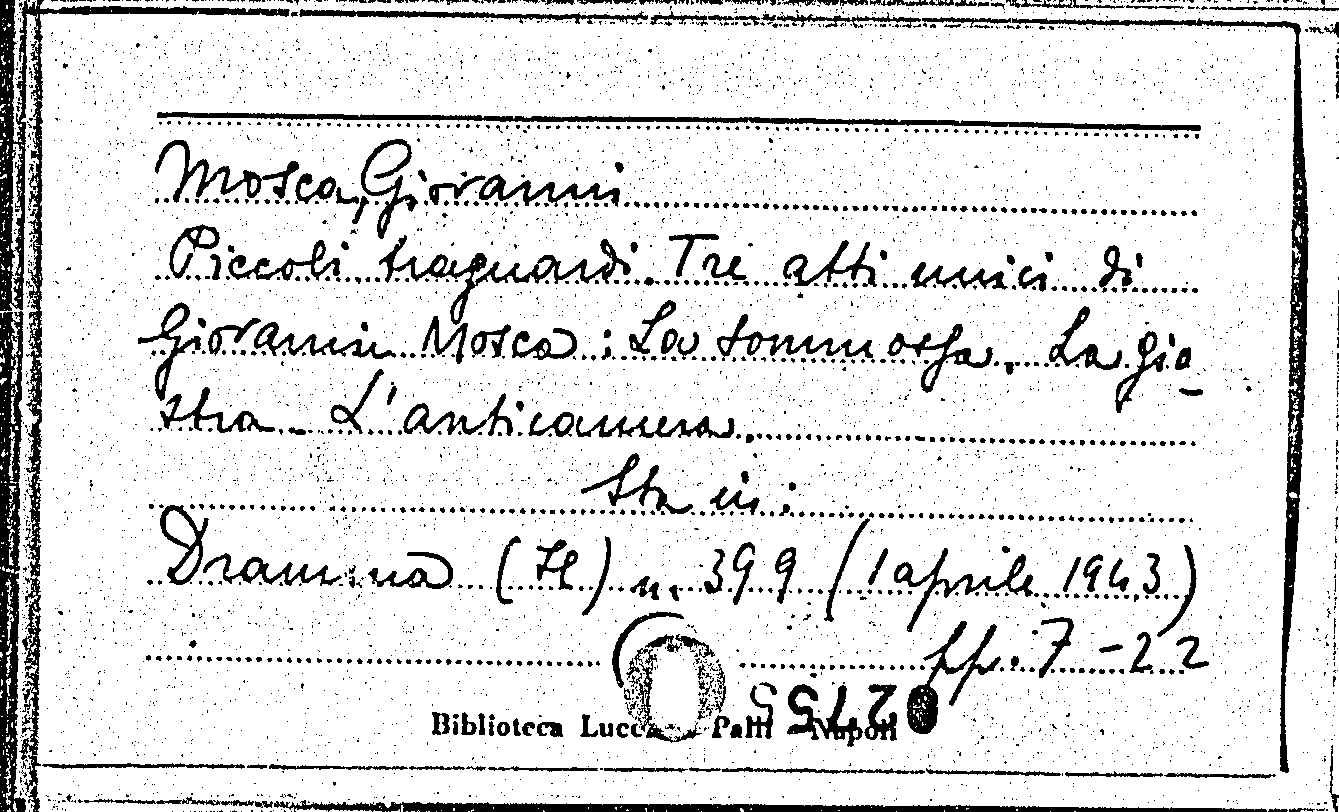 Mosca, Giovanni
Piccoli traguardi. Tre atti unici di
Giovanni Mosca: La sommossa. La gio-
stra - L'anticamera.
Sta in:
Dramma (Il) n. 399 (1 aprile 1943)
pp. 7-22
Biblioteca Lucc Palli Napoli